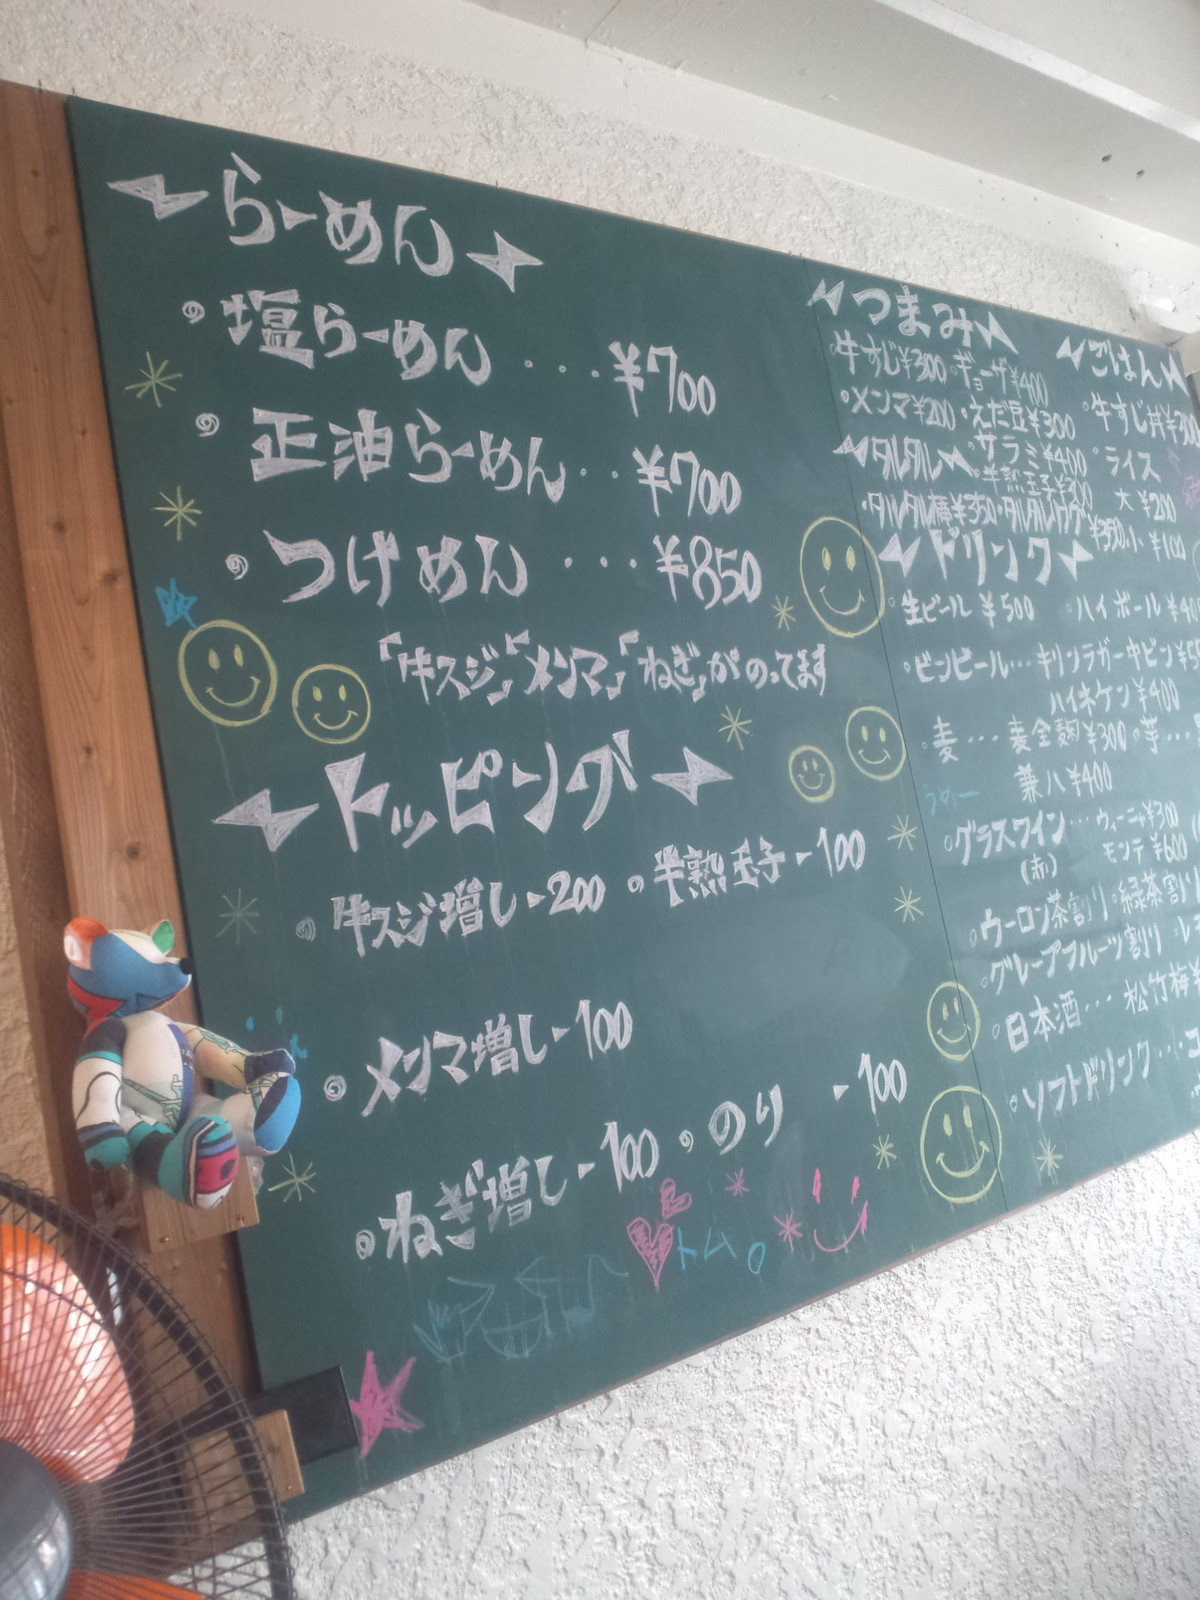 らーめん
塩らーめん・・・¥700
正油らーめん・・¥700
つけめん・・・¥850
「牛スジ」「メンマ」「ねぎ」がのってます
トッピング
牛スジ増し-200 半熟玉子-100
メンマ増し-100
ねぎ増し-100 のり -100
トム。
つまみ
牛すじ¥300 ギョーザ¥400
メンマ¥200 えだ豆¥300
サラミ¥400
半熟玉子¥300
タルタル
タルタル
¥350
ごはん
牛すじ丼
ライス
大¥200
小¥100
ドリンク
生ビール ¥500 ハイボール
ビンビール… キリンラガー中ビン
ハイネケン¥400
麦… 裏全麹¥300 芋…
兼八¥400
うめー
グラスワイン… ウィーニャ¥300
(赤) モンテ¥600
ウーロン茶割り 緑茶割り
グレープフルーツ割り
日本酒… 松竹梅
ソフトドリンク…